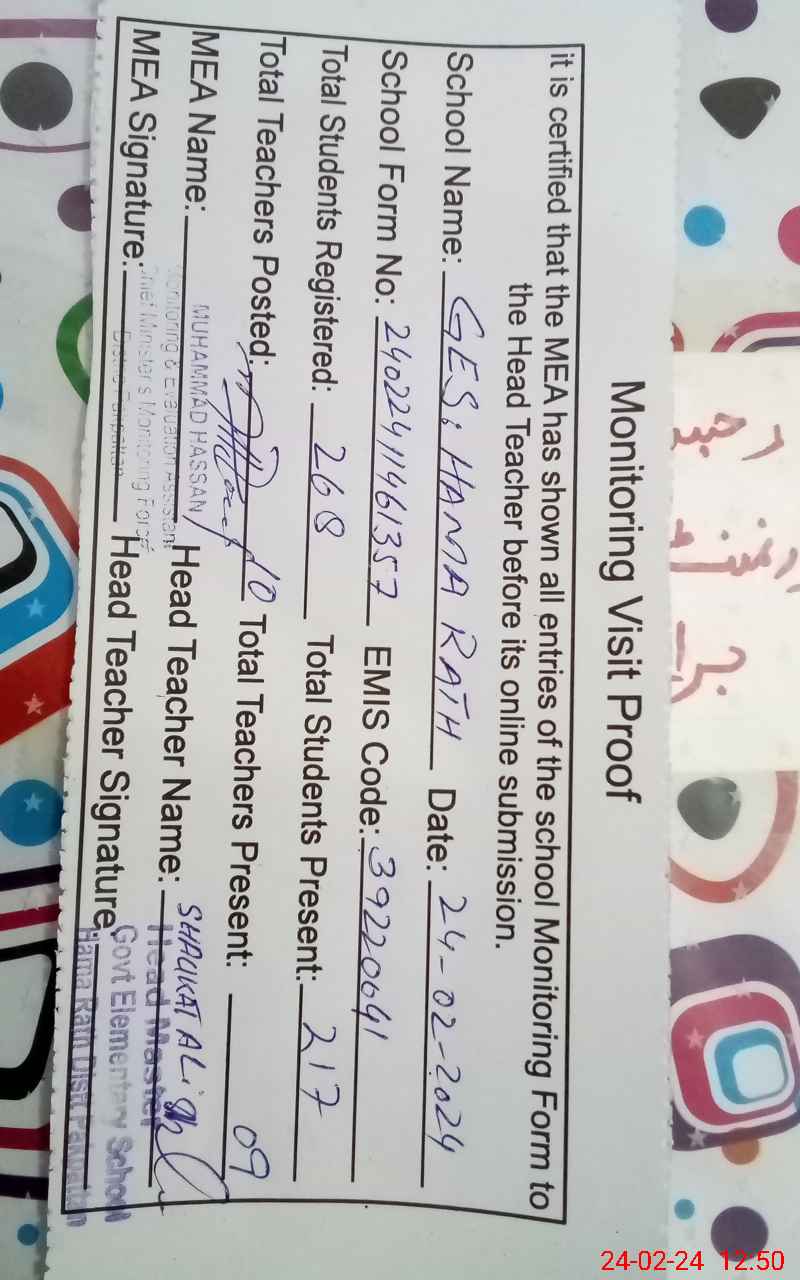 Monitoring Visit Proof
it is certified that the MEA has shown all entries of the school Monitoring Form to
the Head Teacher before its online submission.
School Name: GES; HAMA RATH Date: 24-02-2024
School Form No: 24022411461357 EMIS Code: 39220641
Total Students Registered: 268 Total Students Present: 217
Total Teachers Posted: 10 Total Teachers Present: 09
MEA Name: MUHAMMAD HASSAN Head Teacher Name: SHAUKAT ALI
Monitoring & Evaluation Assistant Head Master
MEA Signature: Head Teacher Signature
Chief Minister's Monitoring Force Govt Elementary School
Distric Pakpattan Hama Rath Distt Pakpattan
24-02-24 12:50